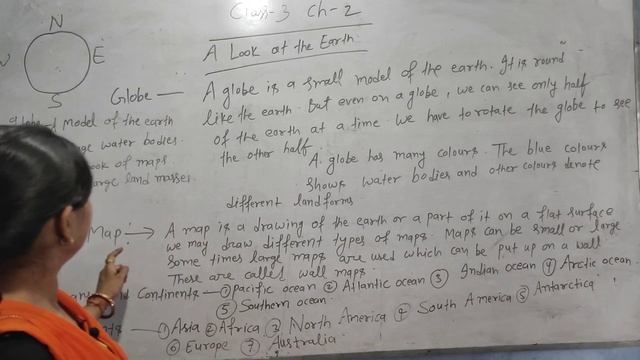 Class-3 Ch-2
N
A Look at the Earth
W
E
S
Globe — A globe is a small model of the earth. It is round
like the earth. But even on a globe, we can see only half
of the earth at a time. We have to rotate the globe to see
the other half.
globe - Model of the earth
water bodies.
book of maps
large land masses.
A globe has many colours. The blue colours
shows water bodies and other colours denote
different landforms
Map: → A map is a drawing of the earth or a part of it on a flat surface
we may draw different types of maps. Maps can be small or large
some times large maps are used which can be put up on a wall
These are called wall maps.
Continents — ① Pacific ocean ② Atlantic ocean ③ Indian ocean ④ Arctic ocean
⑤ Southern ocean
① Asia ② Africa ③ North America ④ South America ⑤ Antarctica
⑥ Europe ⑦ Australia